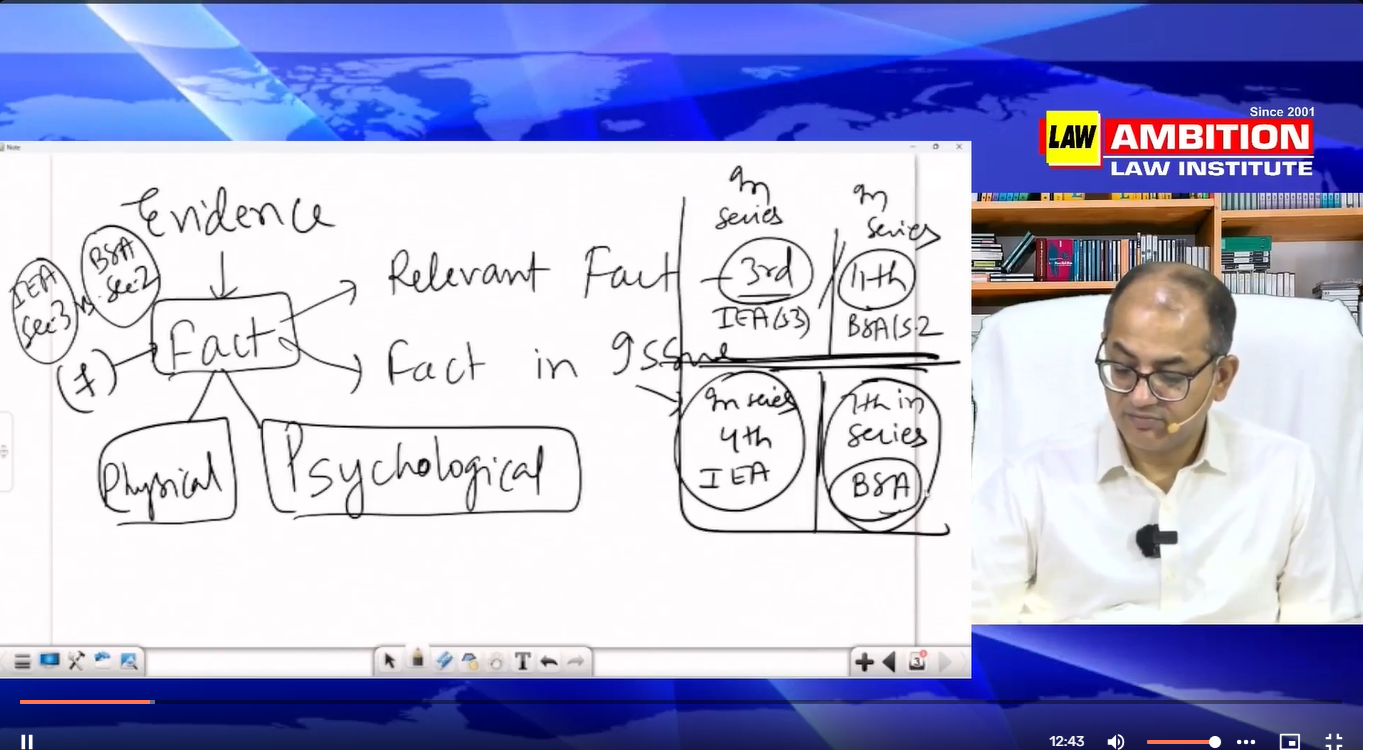 Since 2001
LAW AMBITION
LAW INSTITUTE
Note
Evidence
IEA
Sec 3
BSA
Sec 2
Fact
(f)
Relevant Fact
Fact in Issue
Physical
Psychological
In
series
3rd
IEA (S3)
In
series
11th
BSA (S.2
In series
4th
IEA
7th in
series
BSA
T
3
12:43